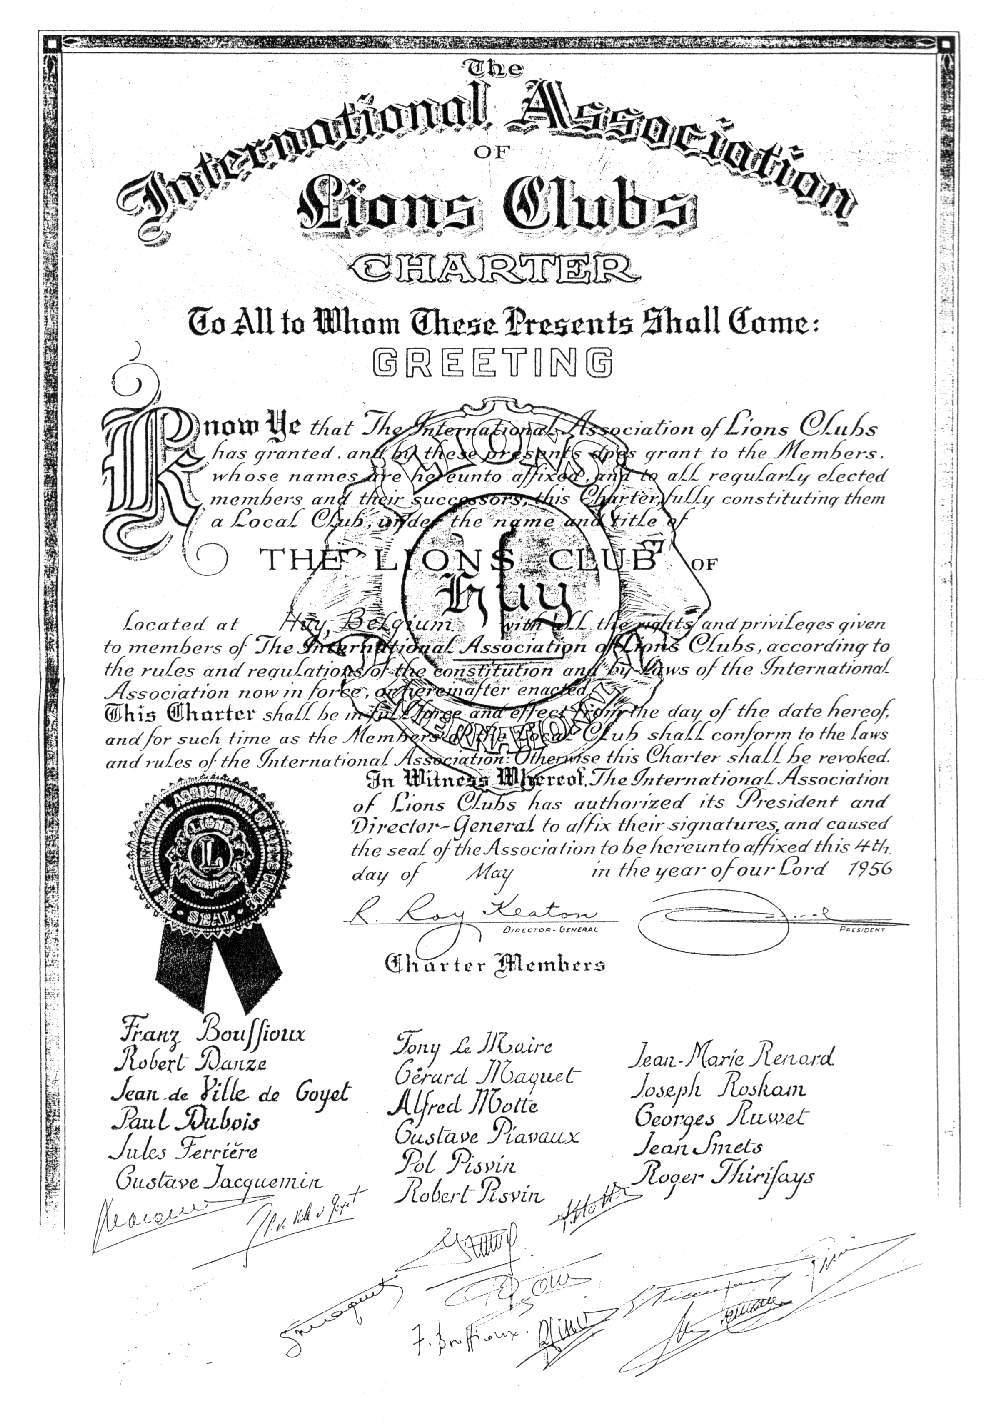 The
International Association
OF
Lions Clubs
CHARTER
To All to Whom These Presents Shall Come:
GREETING
Know Ye that The International Association of Lions Clubs
has granted, and by these presents does grant to the Members,
whose names are hereunto affixed, and to all regularly elected
members and their successors, this Charter, fully constituting them
a Local Club, under the name and title of
THE LIONS CLUB OF
Huy
Located at Huy, Belgium with all the rights and privileges given
to members of The International Association of Lions Clubs, according to
the rules and regulations of the constitution and by-laws of the International
Association now in force, or hereinafter enacted.
This Charter shall be in full force and effect from the day of the date hereof,
and for such time as the Members of the Local Club shall conform to the laws
and rules of the International Association: Otherwise this Charter shall be revoked.
In Witness Whereof, The International Association
of Lions Clubs has authorized its President and
Director-General to affix their signatures, and caused
the seal of the Association to be hereunto affixed this 4th.
day of May in the year of our Lord 1956
LIONS
INTERNATIONAL
THE INTERNATIONAL ASSOCIATION OF LIONS CLUBS
LIONS
L
SEAL
R. Roy Keaton
DIRECTOR-GENERAL
PRESIDENT
Charter Members
Franz Bouffioux
Robert Danze
Jean de Ville de Goyet
Paul Dubois
Jules Ferrière
Gustave Jacquemin
Tony Le Maire
Gérard Maquet
Alfred Motte
Gustave Piavaux
Pol Pisvin
Robert Pisvin
Jean-Marie Renard
Joseph Roskam
Georges Ruwet
Jean Smets
Roger Thirifays
F. Bouffioux.